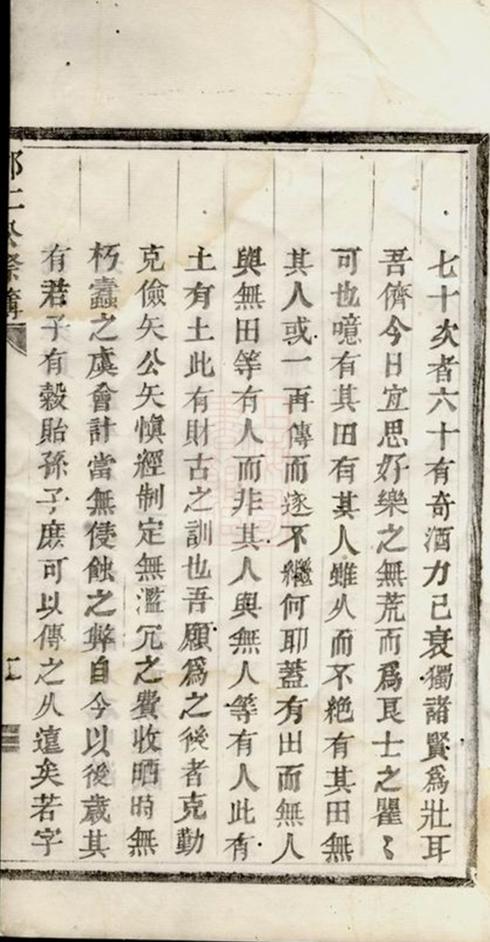 七十次者六十有奇酒力已衰獨諸賢為壯耳
吾儕今日宜思好樂之無荒而爲良士之瞿〻
可也噫有其田有其人雖乆而不絶有其田無
其人或一再傳而遂不繼何耶蓋有田而無人
與無田等有人而非其人與無人等有人此有
土有土此有財古之訓也吾願爲之後者克勤
克儉矢公矢慎經制定無濫冗之費收晒時無
朽蠹之虞會計當無侵蝕之弊自今以後歲其
有若子有穀貽孫子庶可以傳之乆遠矣若字